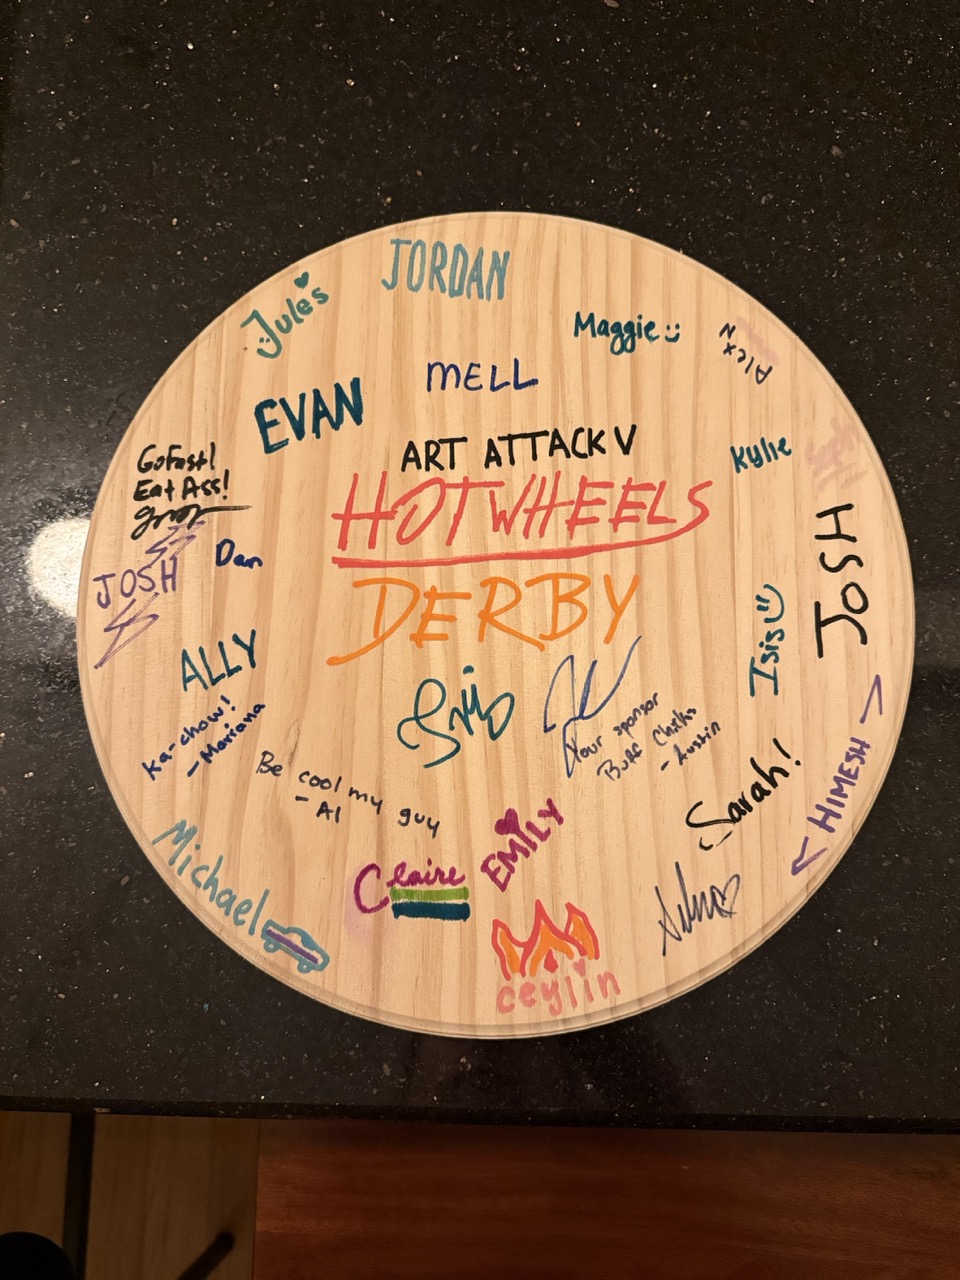 JORDAN
Jules
Maggie
Alex N
MELL
EVAN
ART ATTACK V
HOTWHEELS
DERBY
Kylie
Go Fast!
Eat Ass!
Dan
JOSH
JOSH
Isis
ALLY
Ka-chow!
- Mariana
Your sponsor
Buff Chicks
- Austin
Be cool my guy
- Al
HIMESH
Sarah!
EMILY
Claire
Michael
ceylin